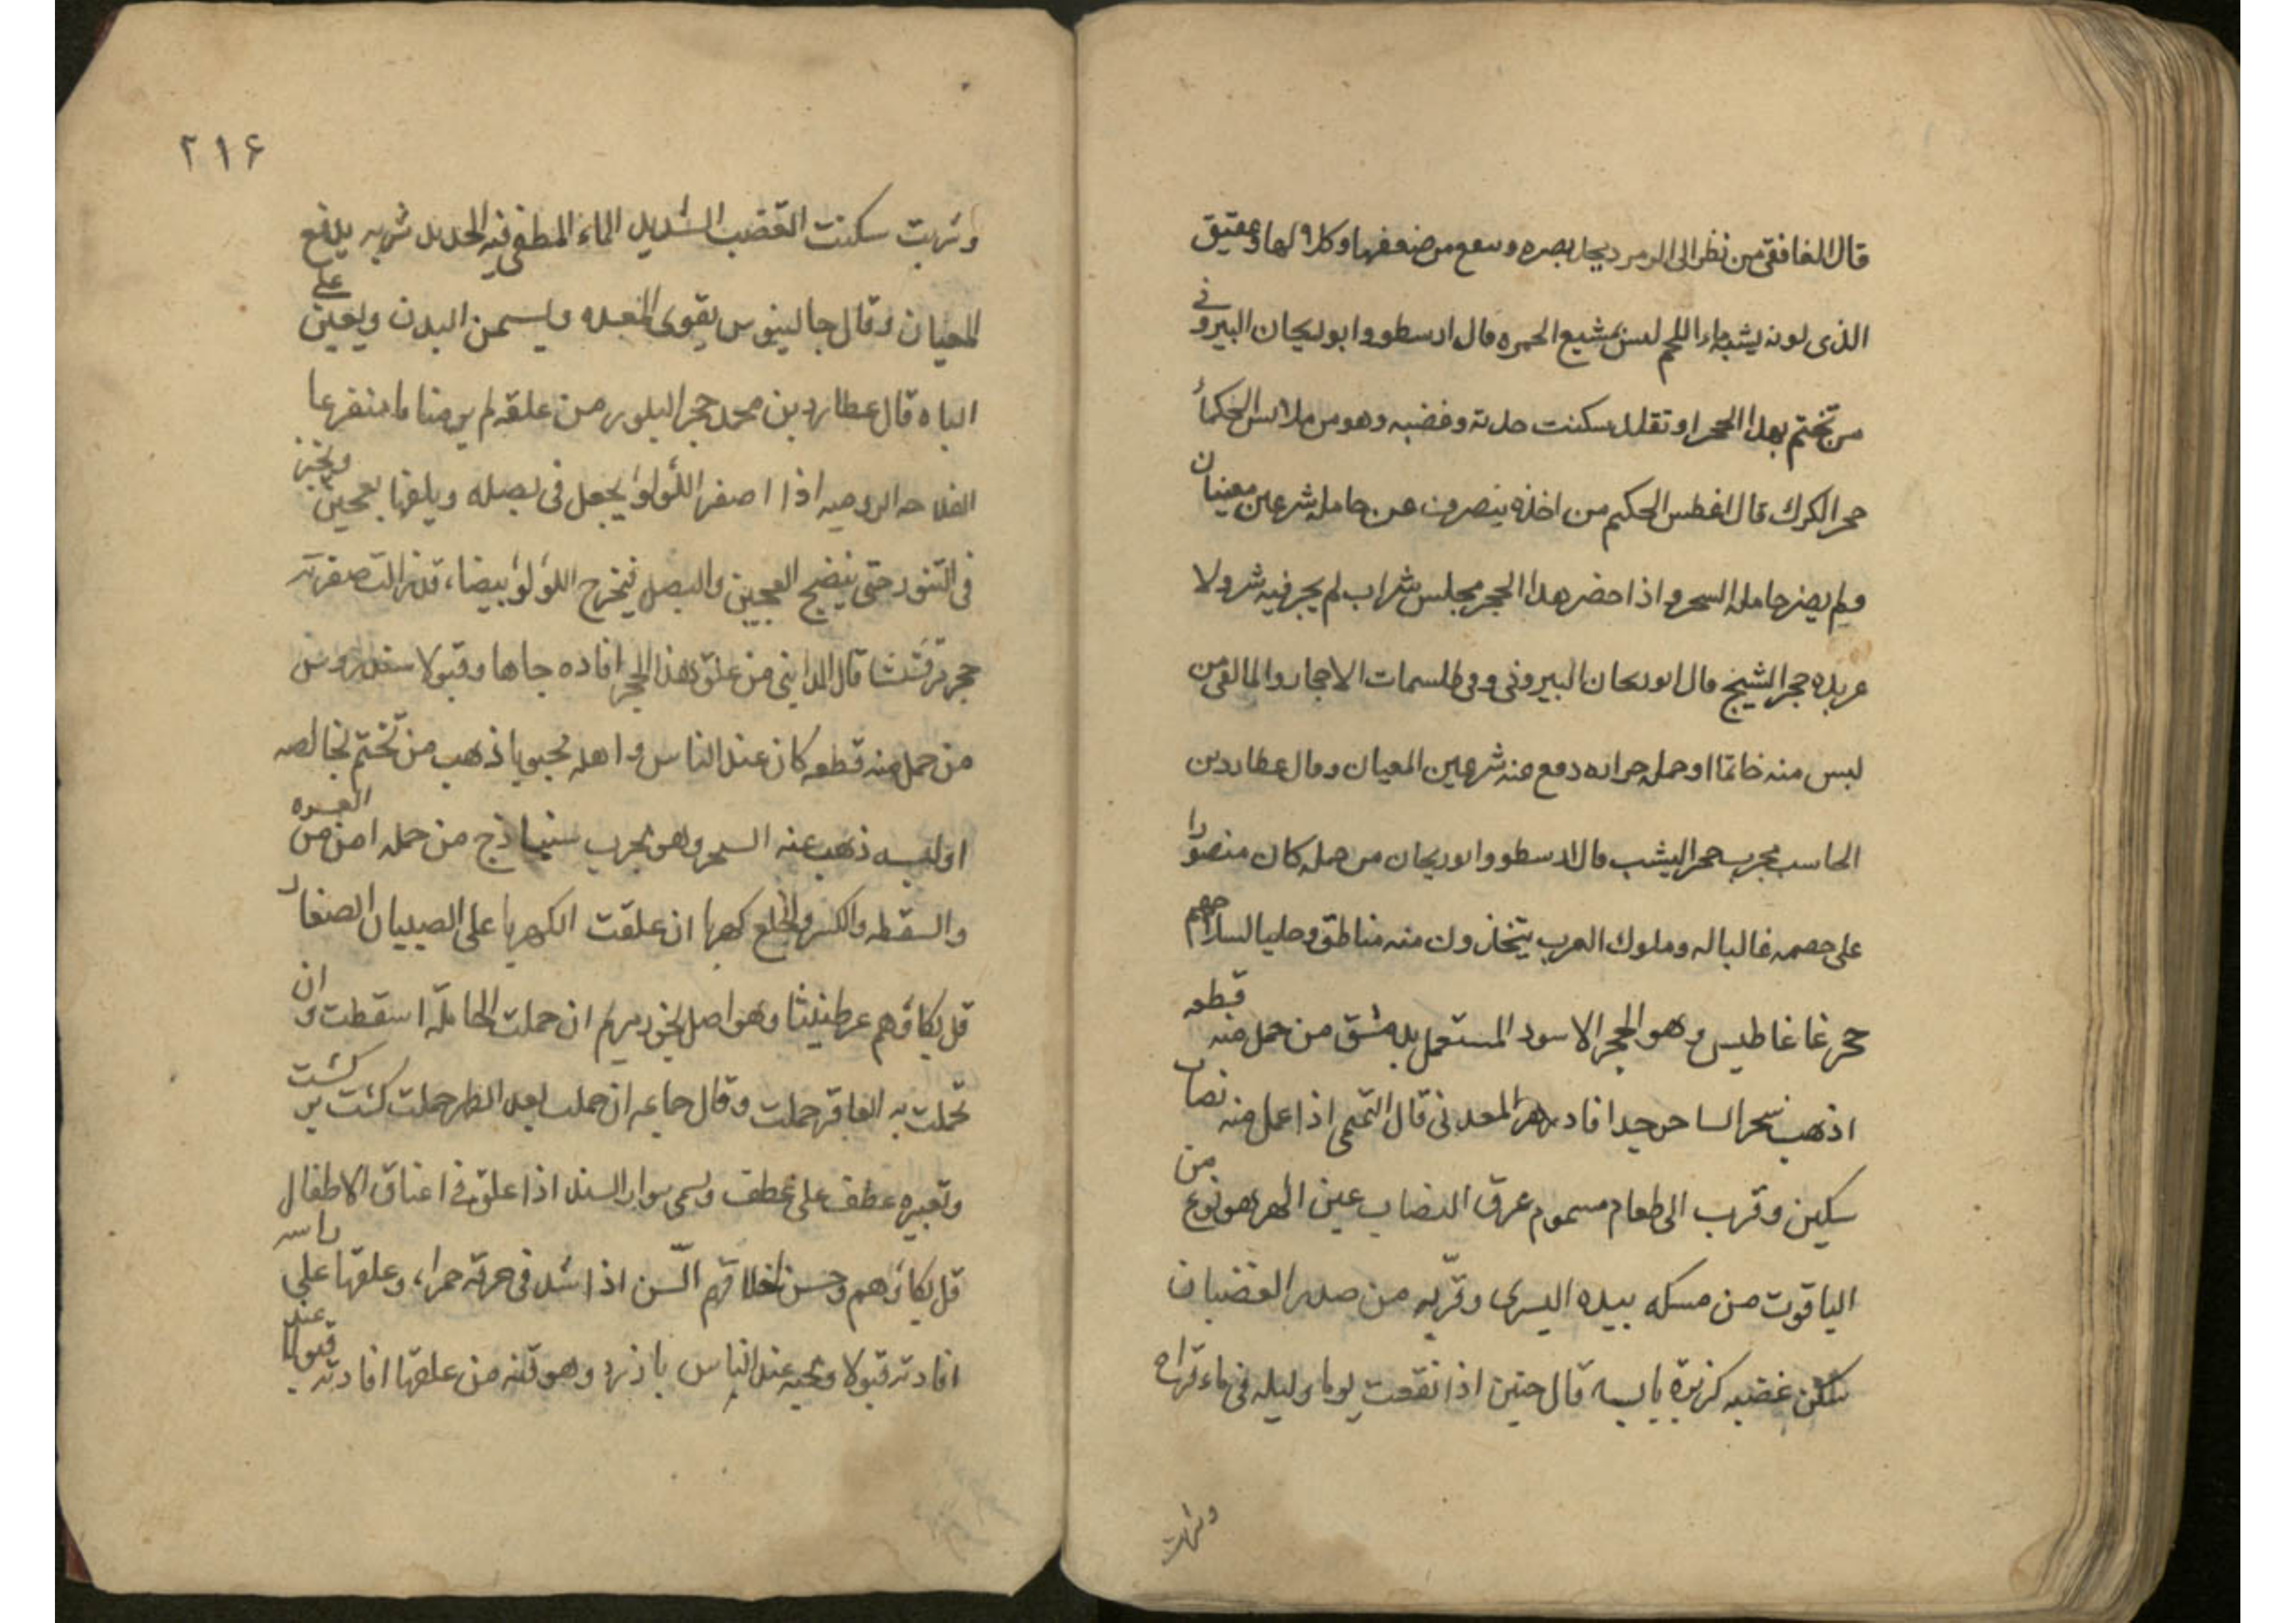 قال الغافقي من نظر الى الزمرد يجلا بصره ومنع من ضعفها وكلالها وعقيق
الذى لونه يشبه ماء اللحم ليس بمشبع الحمره قال ارسطو وابوريحان البيرونى
من تختم بهذا الحجر او تقلد سكنت حدته وغضبه وهو من ملابس الحكماء
حجر الكرك قال اغطس الحكيم من اخذه ينصرف عن حامله شر عين معينان
ولم يضر حامله السحر واذا حضر هذا الحجر مجلس شراب لم يجر فيه شر ولا
عربده حجر الشيح قال ابوريحان البيرونى وفى طلسمات الاحجار والمالقى من
لبس منه خاتما او حمله حرابه دفع عنه شر عين المعيان وقال عطارد بن
الحاسب مجرب حجر اليشب قال ارسطو وابوريحان من حمله كان منصورا
على خصمه غالبا له وملوك العرب يتخذون منه مناطق وحليا لسلاحهم
حجر غاغاطيس وهو الحجر الاسود المستعمل بدمشق من حمل منه قطعه
اذهب سحر الساحر جدا فادزهر المعدنى قال التميمى اذا عمل منه نصاب
سكين وقرب الى طعام مسموم عرق النصاب عين الهر هو نوع من
الياقوت من مسكه بيده اليسرى وقربه من صدر الغضبان
سكن غضبه كزبرة يابسه قال حنين اذا نقعت يوما وليله فى ماء قراح
وشربت
٢١۶
وشربت سكنت القضب الشديد الماء المطفى فيه الحديد شربه يدفع
المعيان وقال جالينوس يقوى المعده ويسمن البدن ويعين على
الباه قال عطارد بن محمد حجر البلور من علقه لم ير مناما منفزعا
الفلاحه الروميه اذا اصفر اللؤلؤ يجعل فى بصله ويلفها بعجين ويخبز
فى التنور حتى ينضج العجين والبصل فيخرج اللؤلؤ بيضاء قد زالت صفرته
حجر مرقشثا قال المدايني من علق هذا الحجر افاده جاها وقبولا سندروس
من حمل منه قطعه كان عند الناس واهله محبوبا ذهب من تختم بخالصه
او لبسه ذهب عنه السحر وهو مجرب سنباذج من حمله امن من العسره
والسقطه والكسر والخلع كهربا ان علقت الكهربا على الصبيان الصغار
قل بكاؤهم عرطنيثا وهو اصل بخور مريم ان حملت الحامله اسقطت وان
تحملت به العاقر حملت وقال جماعه ان حملت بعد الطهر حملت كشت بر كشت
وتعبيره عطف على عطف ويسمى سوار السند اذا علق فى اعناق الاطفال
قل بكاؤهم وحسن اخلاقهم السن اذا شد فى خرقه حمراء وعلقها على راسه
افادته قبولا ومحبه عند الناس باذزرد وهو قنه من علقها افادته قبولا عند